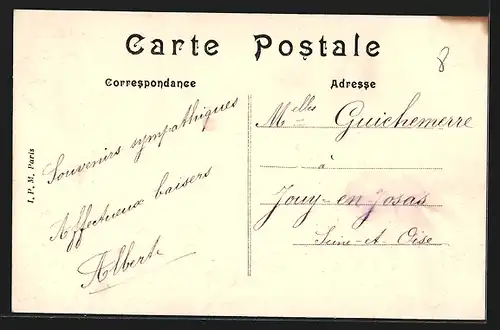 Carte Postale
8
Correspondance
Adresse
Souvenirs sympathiques
Affectueux baisers
Albert
I. P. M. Paris
Melles Guichemerre
à
Jouy-en-Josas
Seine-et-Oise